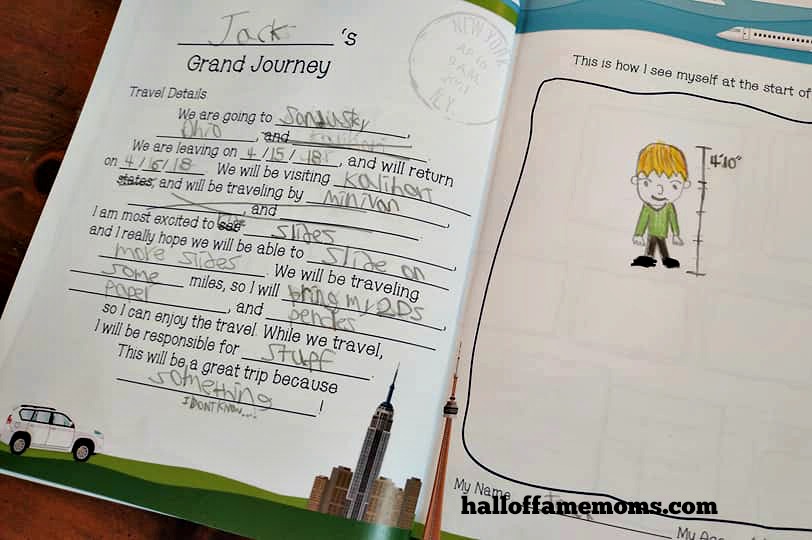 Jack's
Grand Journey
NEW YORK
9 AM
N.Y.
Travel Details
We are going to Sandusky,
Ohio, and
We are leaving on 4/15/18, and will return
on 4/16/18. We will be visiting Kalihari
states, and will be traveling by minivan
, and
I am most excited to see slides
and I really hope we will be able to slide on
more slides. We will be traveling
some miles, so I will bring my 2DS,
paper, and pencles
so I can enjoy the travel. While we travel,
I will be responsible for stuff.
This will be a great trip because
something!
I DONT KNOW...!
This is how I see myself at the start of
4'10"
My Name Jack
My
halloffamemoms.com